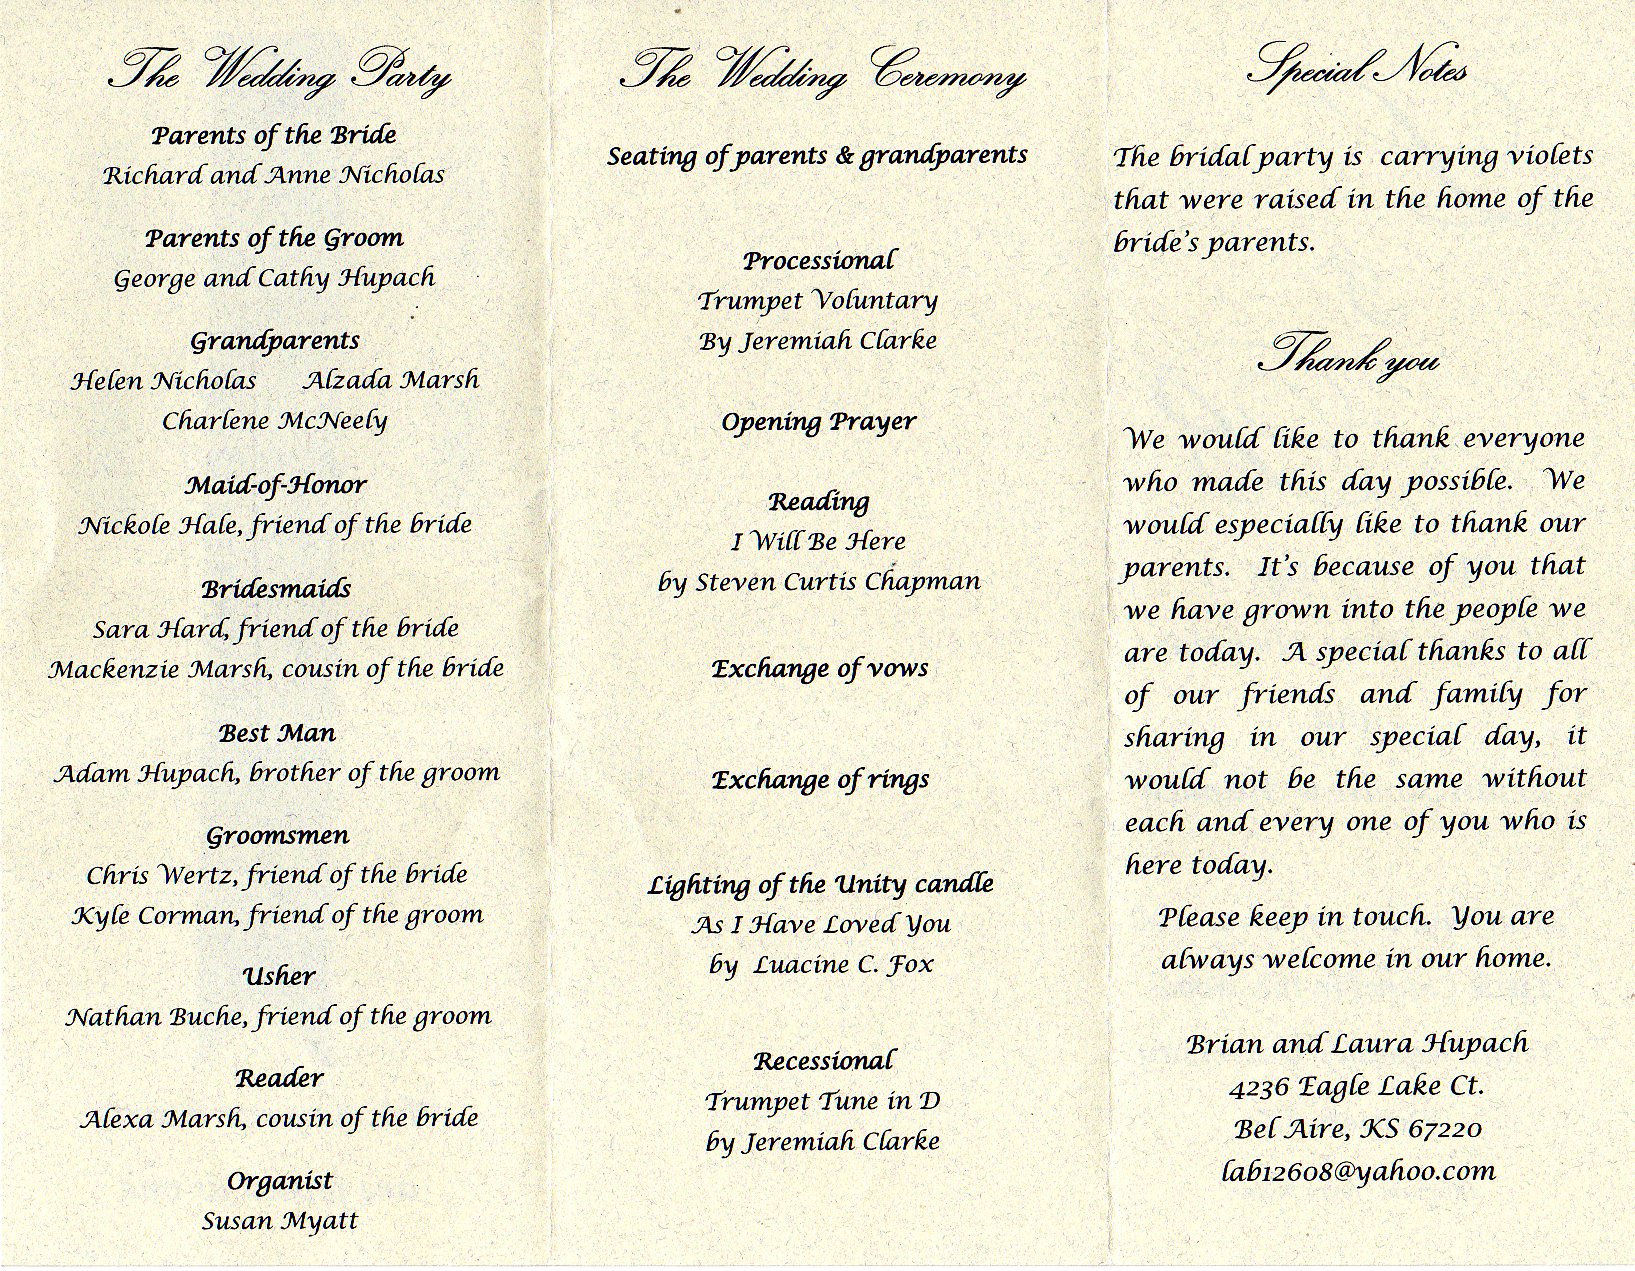 The Wedding Party
Parents of the Bride
Richard and Anne Nicholas
Parents of the Groom
George and Cathy Hupach
Grandparents
Helen Nicholas Alzada Marsh
Charlene McNeely
Maid-of-Honor
Nickole Hale, friend of the bride
Bridesmaids
Sara Hard, friend of the bride
Mackenzie Marsh, cousin of the bride
Best Man
Adam Hupach, brother of the groom
Groomsmen
Chris Wertz, friend of the bride
Kyle Corman, friend of the groom
Usher
Nathan Buche, friend of the groom
Reader
Alexa Marsh, cousin of the bride
Organist
Susan Myatt
The Wedding Ceremony
Seating of parents & grandparents
Processional
Trumpet Voluntary
By Jeremiah Clarke
Opening Prayer
Reading
I Will Be Here
by Steven Curtis Chapman
Exchange of vows
Exchange of rings
Lighting of the Unity candle
As I Have Loved You
by Luacine C. Fox
Recessional
Trumpet Tune in D
by Jeremiah Clarke
Special Notes
The bridal party is carrying violets
that were raised in the home of the
bride's parents.
Thank you
We would like to thank everyone
who made this day possible. We
would especially like to thank our
parents. It's because of you that
we have grown into the people we
are today. A special thanks to all
of our friends and family for
sharing in our special day, it
would not be the same without
each and every one of you who is
here today.
Please keep in touch. You are
always welcome in our home.
Brian and Laura Hupach
4236 Eagle Lake Ct.
Bel Aire, KS 67220
lab12608@yahoo.com